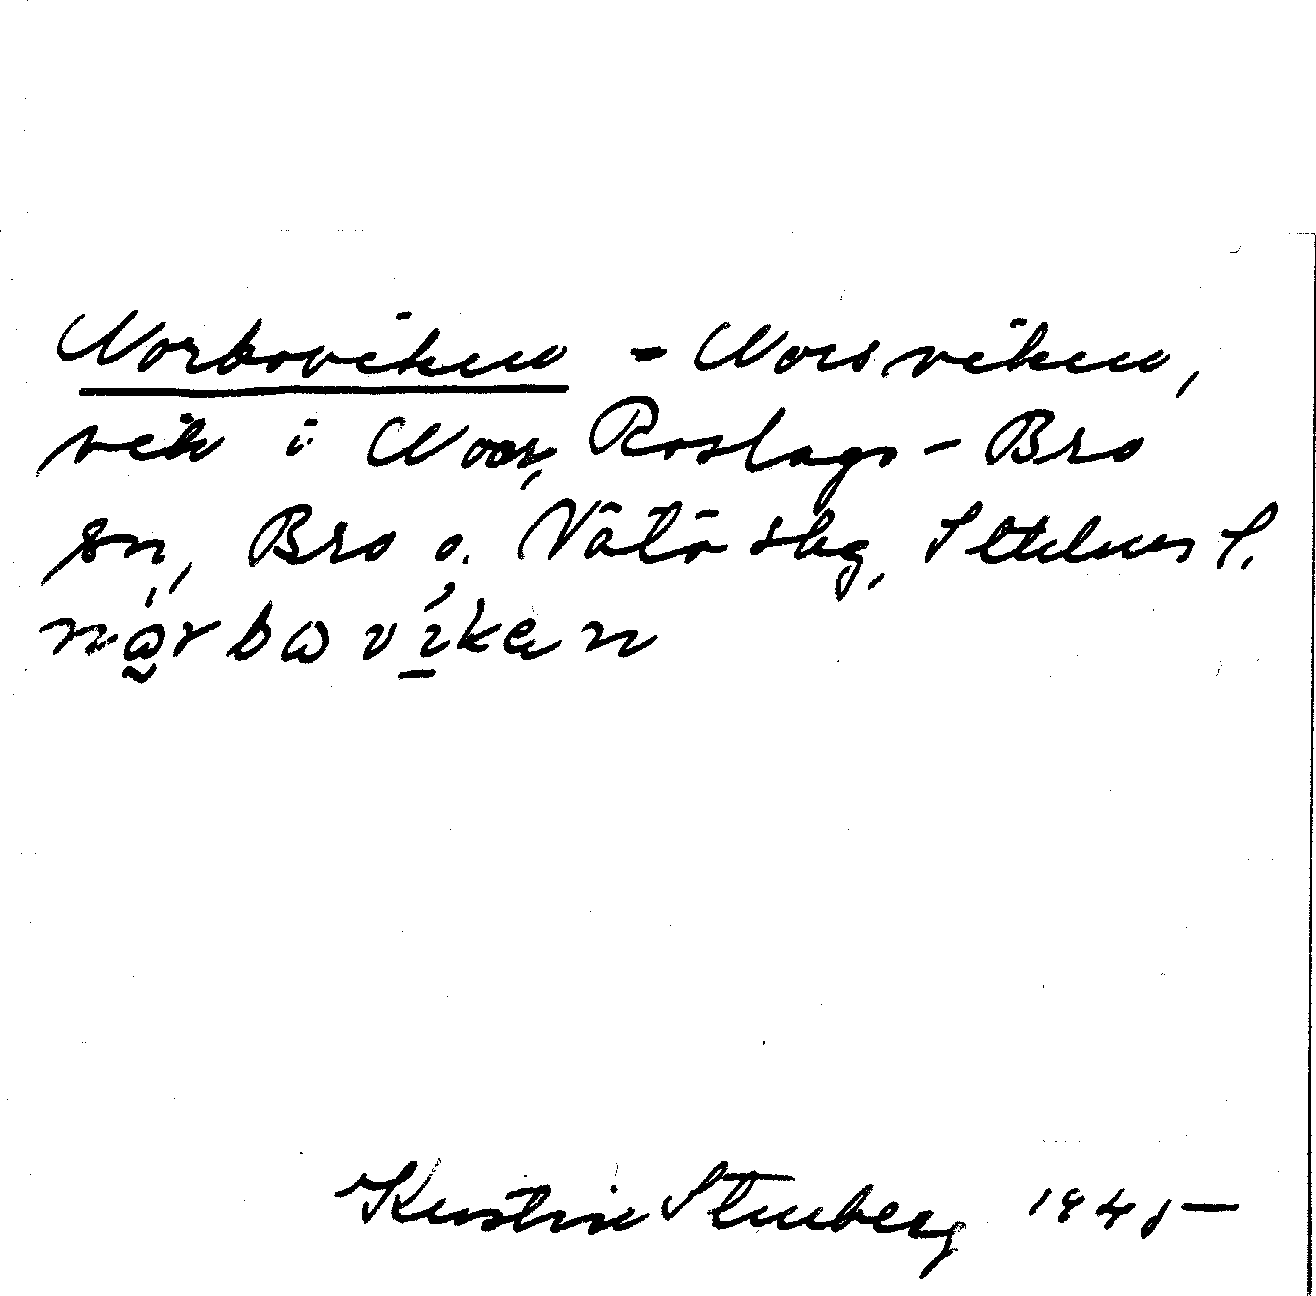 Norboviken - Norsviken,
vik i Noor, Roslags-Bro
sn, Bro o. Vätö skg, Sthlms l.
nå̰rbɷvi̱ken
Kerstin Stenberg 1945